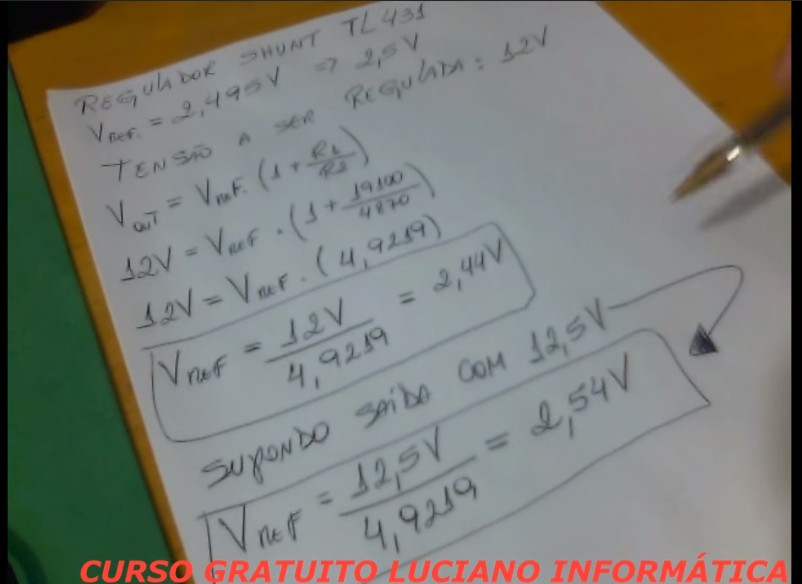 REGULADOR SHUNT TL431
Vref. = 2,495V => 2,5V
TENSÃO A SER REGULADA: 12V
Vout = Vref. (1 + R1/R2)
12V = Vref . (1 + 19100/4870)
12V = Vref . (4,9219)
Vref = 12V/4,9219 = 2,44V
SUPONDO SAÍDA COM 12,5V
Vref = 12,5V/4,9219 = 2,54V
CURSO GRATUITO LUCIANO INFORMÁTICA